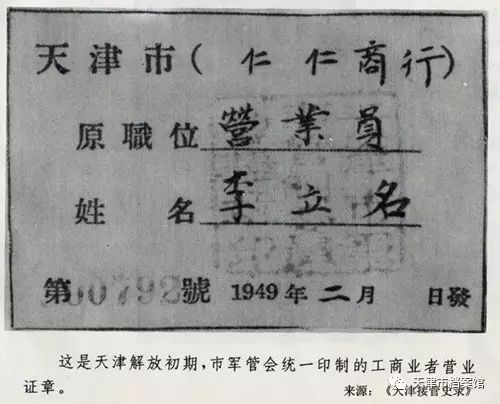 天津市(仁仁商行)
原職位營業員
姓名李立名
第00792號1949年二月 日發
这是天津解放初期,市军管会统一印制的工商业者营业
证章。
来源:《天津接管史录》
天津市档案馆